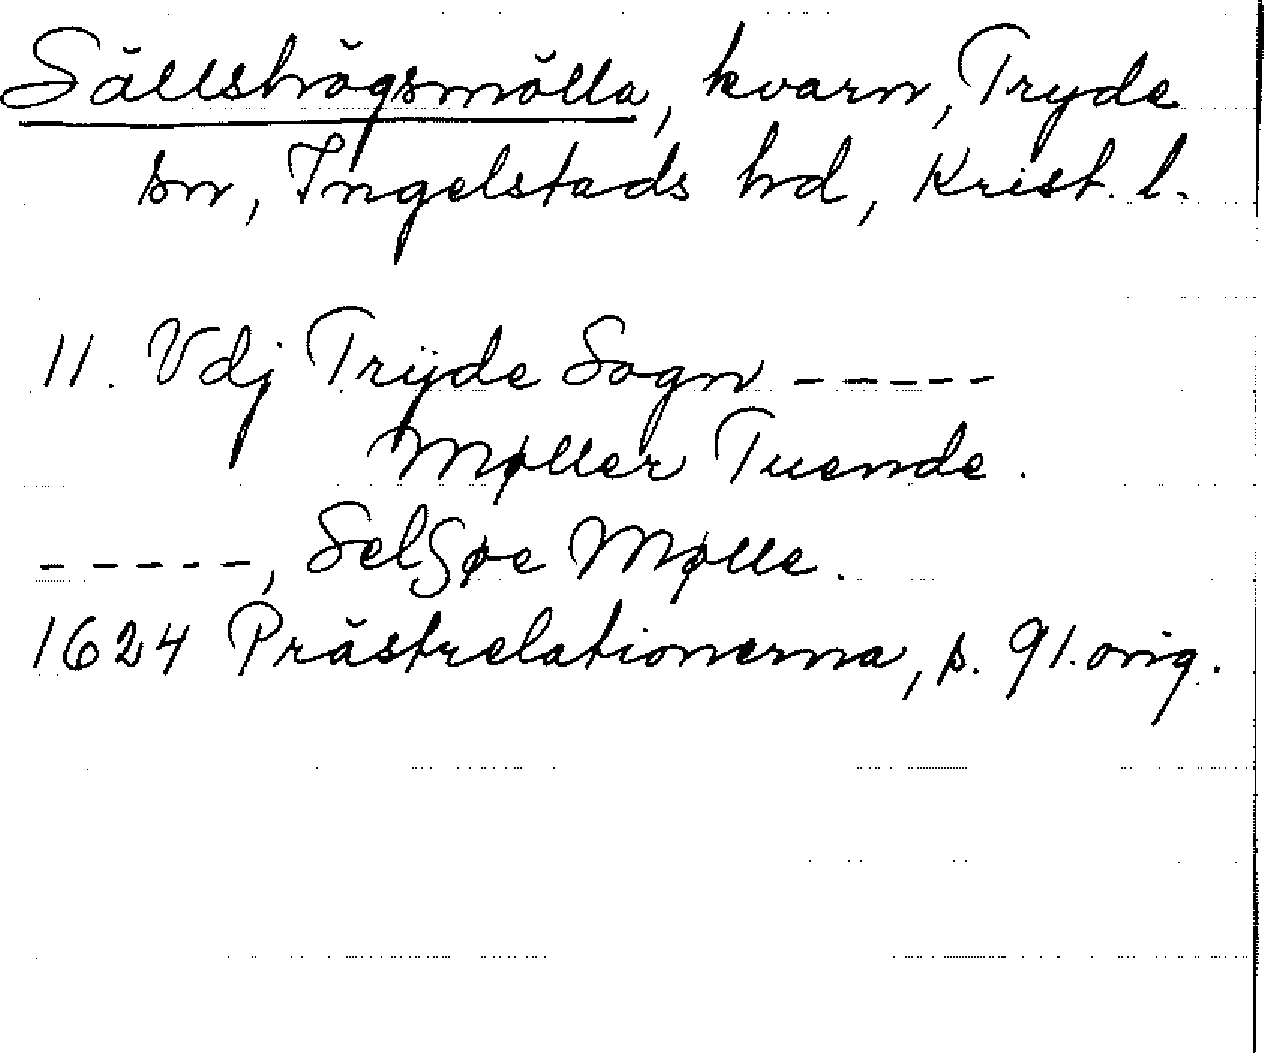 Sällshögsmölla, kvarn, Tryde
sn, Ingelstads hd, Krist. l.
11. Vdj Trÿde Sogn -----
Møller Tuende.
-----, Selgøe Mølle.
1624 Prästrelationerna, s. 91. orig.